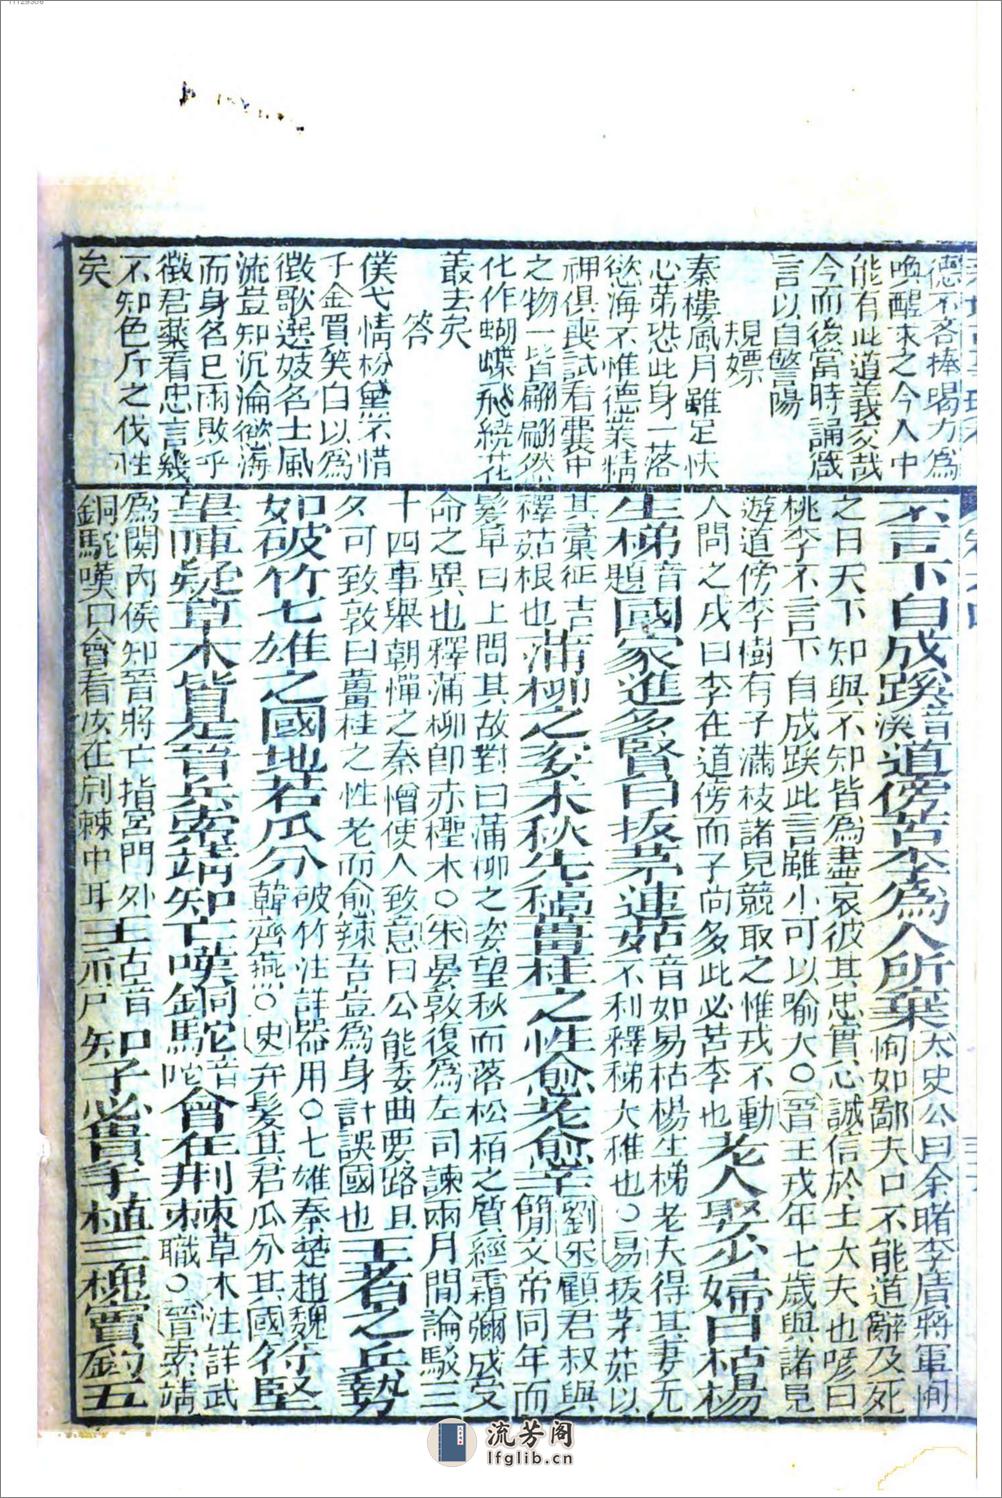 德不吝捧喝力為
喚醒來之今人中
能有此道義交哉
今而後當時誦箴
言以自警陽
規嫖
秦樓風月雖足快
心第恐此身一落
慾海不惟德業情
神俱喪試看囊中
之物一皆翩翩然
化作蝴蝶飛繞花
叢去矣
答
僕弋情粉黛不惜
千金買笑白以為
徵歌選妓名士風
流豈知沉淪慾海
而身名已兩敗乎
徵君藥看忠言幾
不知色斤之伐性
矣
不言下自成蹊音溪道傍苦李為人所棄太史公曰余睹李廣將軍恂
恂如鄙夫口不能道辭及死
之日天下知與不知皆為盡哀彼其忠實心誠信於士大夫也喭曰
桃李不言下自成蹊此言雖小可以喻大○晉王戎年七歲與諸兒
遊道傍李樹有子滿枝諸兒競取之惟戎不動
人問之戎曰李在道傍而子尚多此必苦李也
老人娶少婦曰枯楊
生稊音題國家進多賢曰拔茅連茹音如易枯楊生稊老夫得其妻无
不利釋稊大稚也○易拔茅茹以
其彙征吉
釋茹根也
蒲柳之姿未秋先槁薑桂之性愈老愈辛劉宋顧君叔與
簡文帝同年而
髮早白上問其故對曰蒲柳之姿望秋而落松柏之質經霜彌成受
命之異也釋蒲柳卽赤檉木○宋晏敦復為左司諫兩月間論駁三
十四事舉朝憚之秦憎使人致意曰公能委曲要路旦
夕可致敦曰薑桂之性老而愈辣吾豈為身計誤國也
王者之兵勢
如破竹七雄之國地若瓜分破竹注詳器用○七雄秦楚趙魏
韓齊燕○史弁髦其君瓜分其國
苻堅
望陣疑草木皆是晉兵索靖知亡嘆銅駝音陀會在荆棘草木注詳武
職○晉索靖
為關內侯知晉將亡指宮門外
銅駝嘆曰會看汝在荆棘中耳
王古音三示尸
知子必貴手植三槐竇鈞五